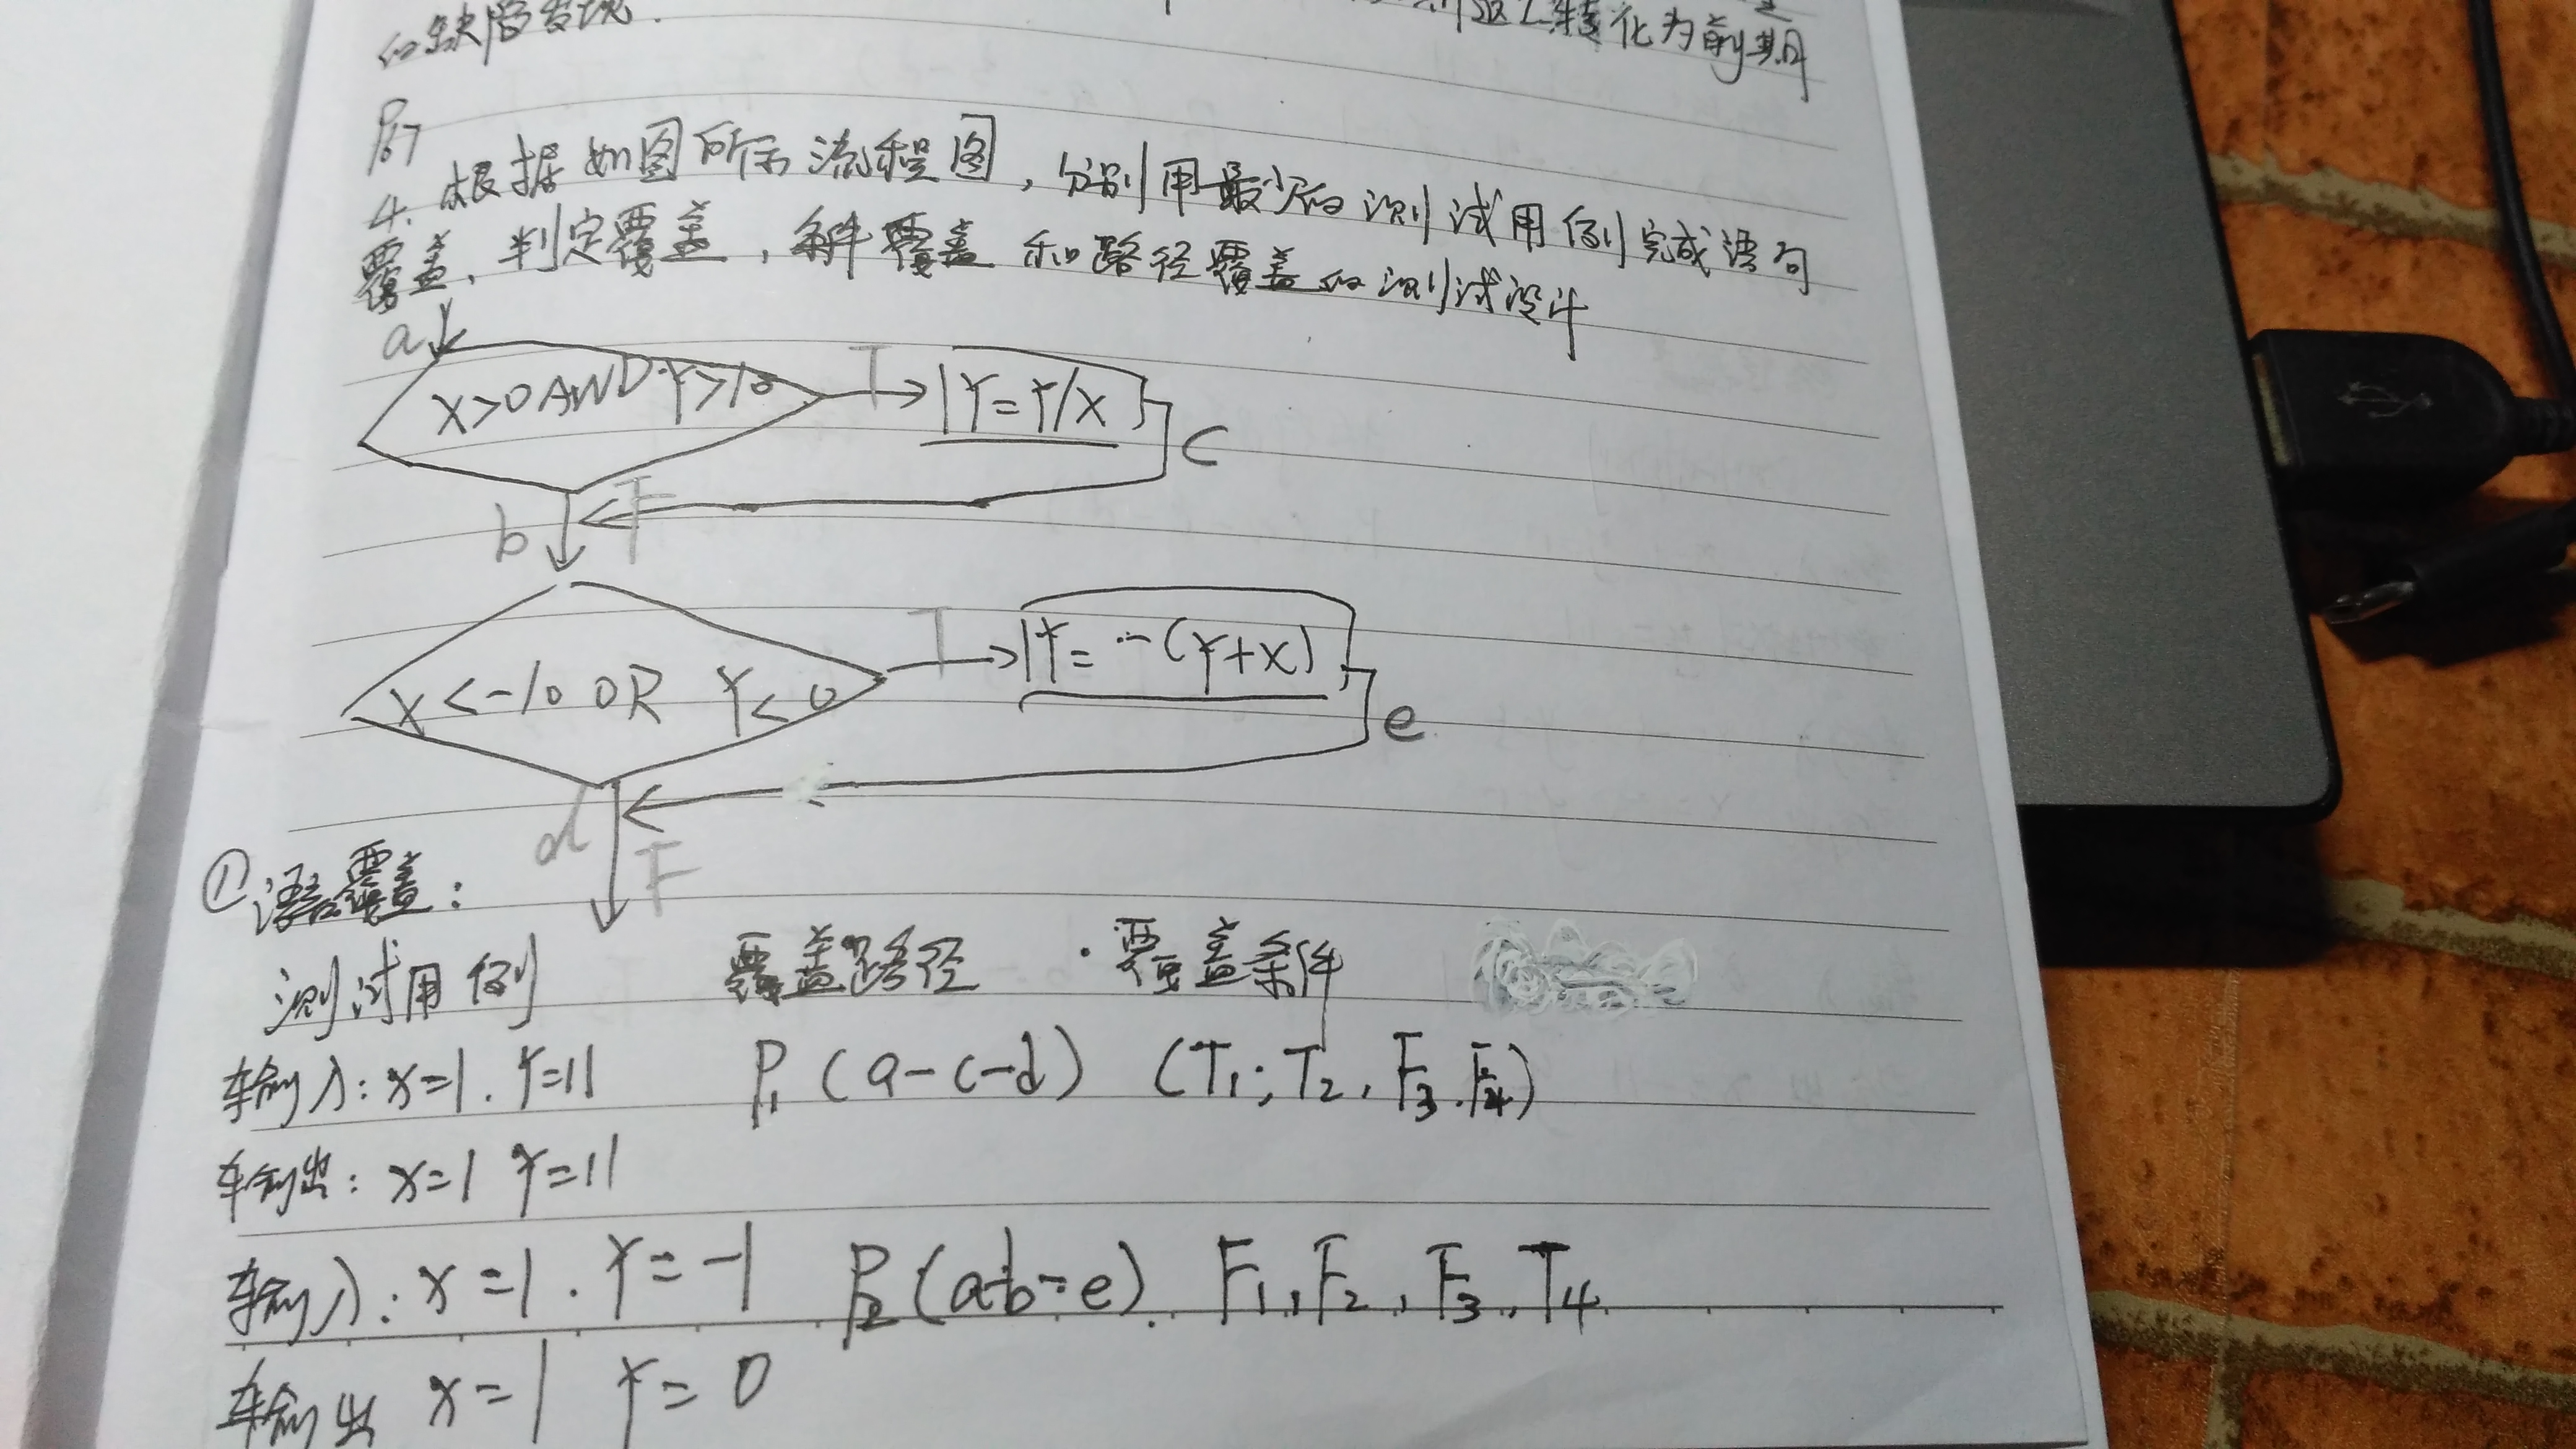 的缺陷发现.
返工转化为前期
例
4. 根据如图所示流程图,分别用最少的测试用例完成语句
覆盖、判定覆盖,条件覆盖和路径覆盖的测试设计
a
X>0 AND Y>10
T
Y=Y/X
c
b
F
X<-10 OR Y<0
T
Y=-(Y+X)
e
d
F
①语句覆盖:
测试用例 覆盖路径 覆盖条件
输入:x=1. Y=11 P1 (a-c-d) (T1; T2, F3. F4)
输出: x=1 Y=11
输入: x=1. Y=-1 P2 (a-b-e). F1, F2, F3, T4
输出 x=1 Y=0